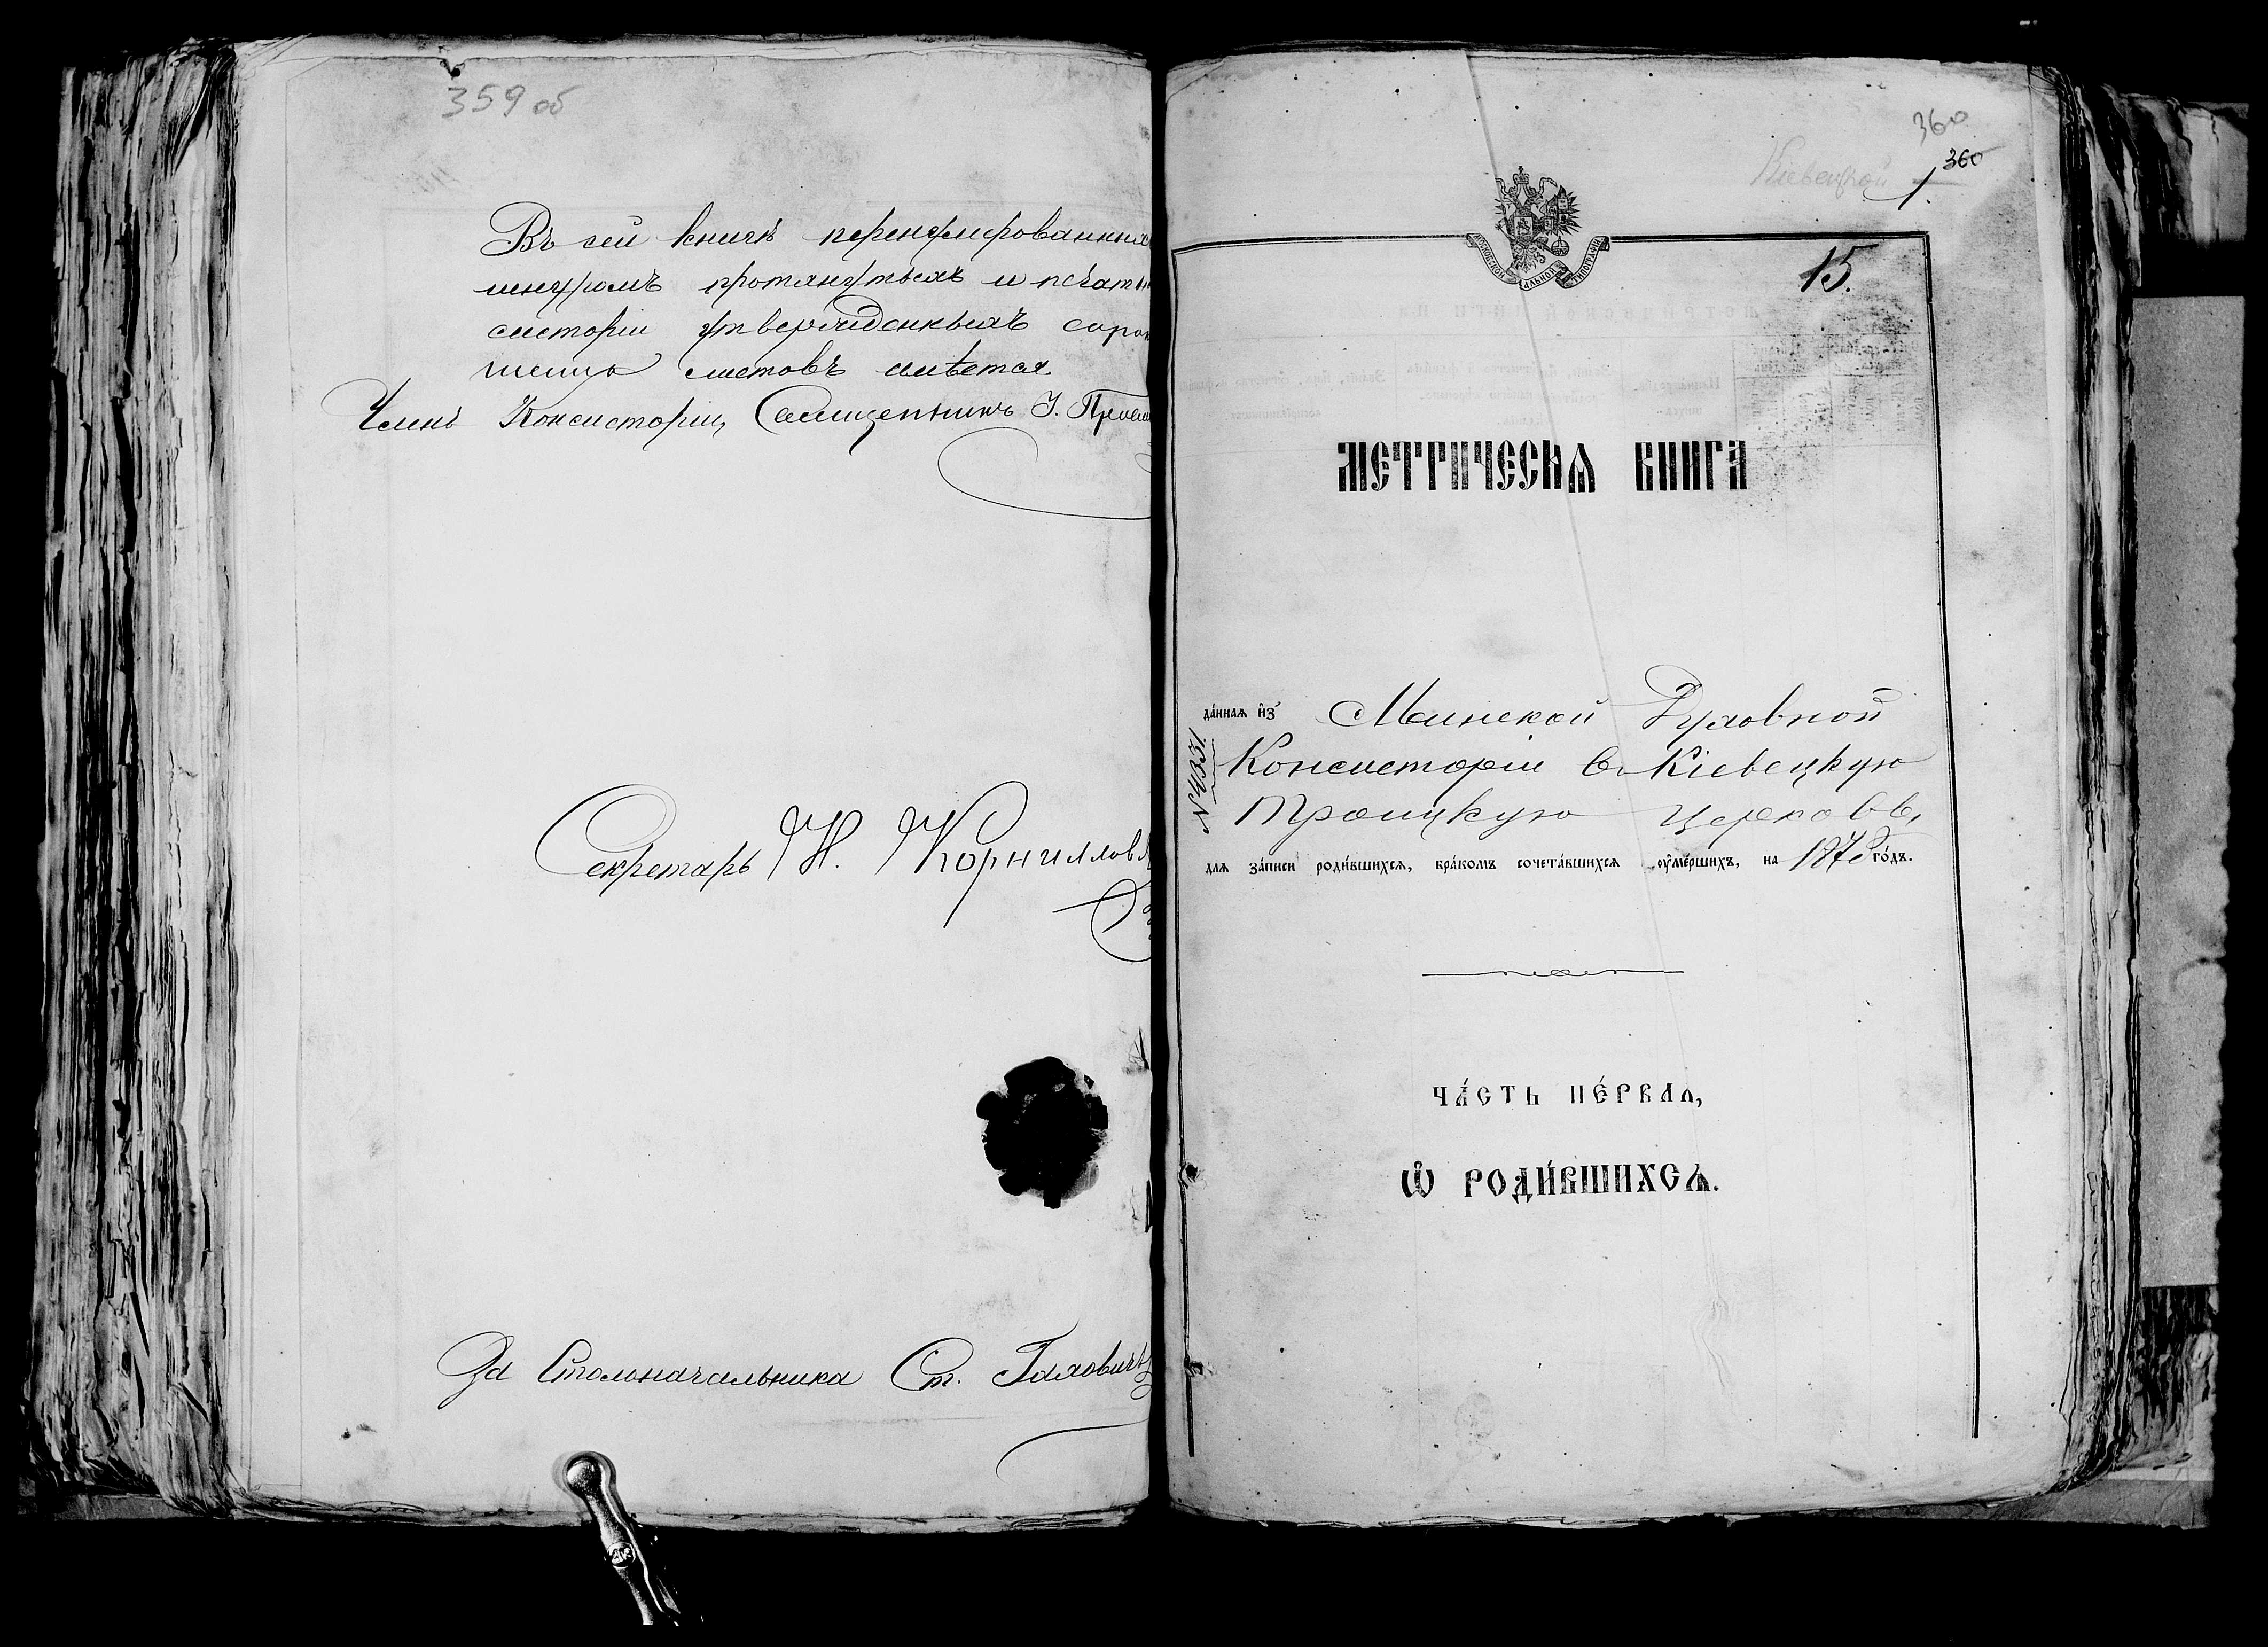 359 об
Въ сей книгѣ перенумерованныхъ
шнуромъ протянутыхъ и печатью
систоріи утвержденныхъ сорокъ
листовъ имѣется
Членъ Консисторіи, Священникъ І.
Секретарь Н. Корнилов
За Столоначальника Ст. Галовичъ
360
360
Кіевецкой
1.
15.
МЕТРИЧЕСКАѦ КНИГА
да́ннаѧ и҆з̾ Минской Духовной
№ 4351.
Консисторіи въ Кіевецкую
Троицкую церковь,
для за́писи роди́вшихсѧ, бра́комъ сочета́вшихсѧ ᲂу҆ме́ршихъ, на 1878 го́дъ.
ЧА́СТЬ ПЕ́РВАѦ,
Ѽ РОДИ́ВШИХСѦ.